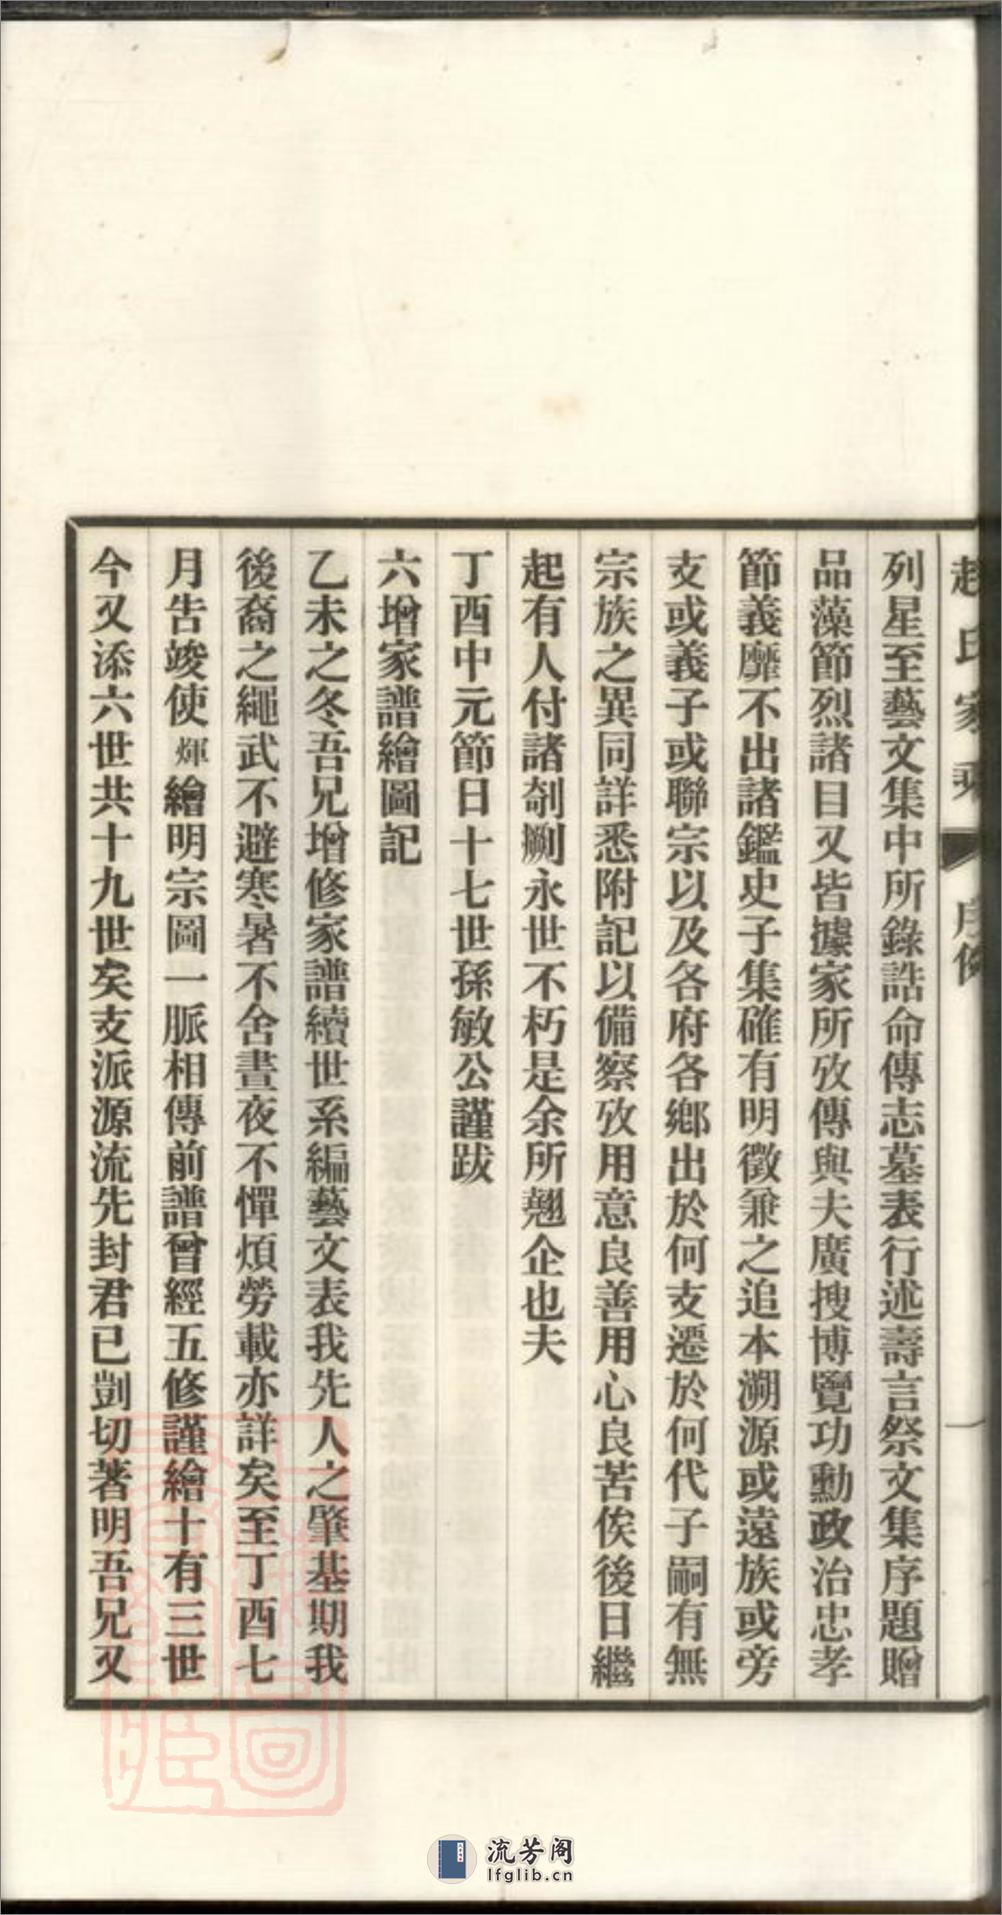 趙氏家乘
序
一
列星至藝文集中所錄誥命傳志墓表行述壽言祭文集序題贈
品藻節烈諸目又皆據家所攷傳與夫廣搜博覽功勳政治忠孝
節義靡不出諸鑑史子集確有明徵兼之追本溯源或遠族或旁
支或義子或聯宗以及各府各鄉出於何支遷於何代子嗣有無
宗族之異同詳悉附記以備察攷用意良善用心良苦俟後日繼
起有人付諸剞劂永世不朽是余所翹企也夫
丁酉中元節日十七世孫敏公謹跋
六增家譜繪圖記
乙未之冬吾兄增修家譜續世系編藝文表我先人之肇基期我
後裔之繩武不避寒暑不舍晝夜不憚煩勞載亦詳矣至丁酉七
月告竣使煇繪明宗圖一脈相傳前譜曾經五修謹繪十有三世
今又添六世共十九世矣支派源流先封君已剴切著明吾兄又
流芳阁
lfglib.cn